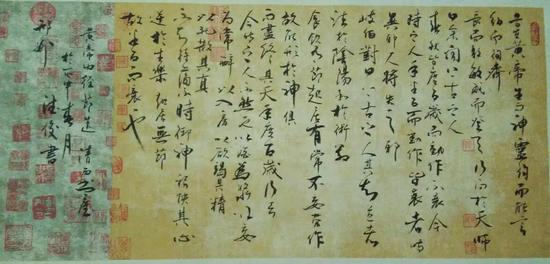 昔在黄帝生而神靈弱而能言
幼而徇齊
長而敦敏成而登天乃問於天師
曰余聞上古之人
春秋皆度百歲而動作不衰今
時之人年半百而動作皆衰者時
異耶人將失之耶
岐伯對曰上古之人其知道者
法於陰陽和於術數
食飲有節起居有常不妄勞作
故能形與神俱
而盡終其天年度百歲乃去
今時之人不然也以酒為漿以妄
為常醉以入房以欲竭其精
以耗散其真
不知持滿不時御神務快其心
逆於生樂起居無節
故半百而衰也
黄帝内經節選
春月
俊書